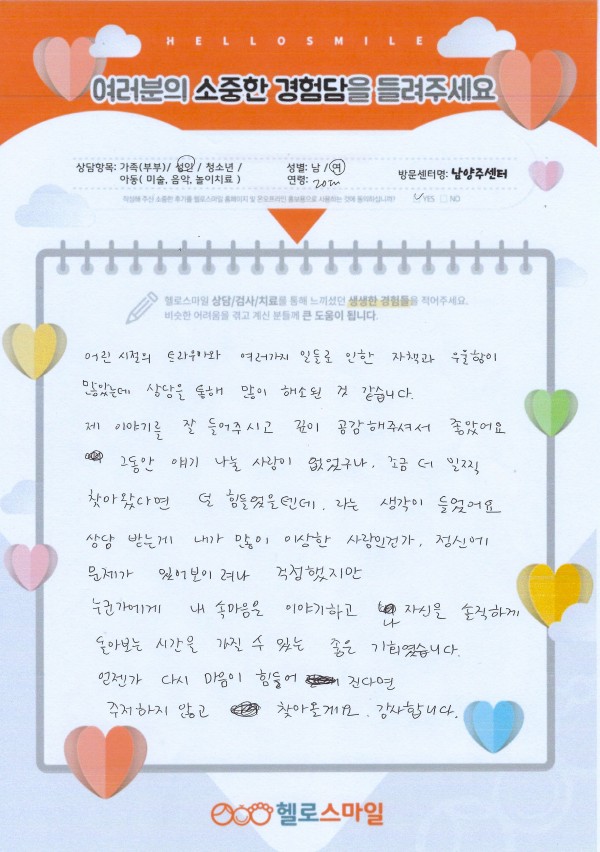 HELLOSMILE
여러분의 소중한 경험담을 들려주세요
상담항목: 가족(부부)/ 성인 / 청소년 /
아동( 미술, 음악, 놀이치료 )
성별: 남 / 여
연령: 20대
방문센터명: 남양주센터
작성해 주신 소중한 후기를 헬로스마일 홈페이지 및 온오프라인 홍보용으로 사용하는 것에 동의하십니까? ☑YES □NO
헬로스마일 상담/검사/치료를 통해 느끼셨던 생생한 경험들을 적어주세요.
비슷한 어려움을 겪고 계신 분들께 큰 도움이 됩니다.
어린 시절의 트라우마와 여러가지 일들로 인한 자책과 우울함이
많았는데 상담을 통해 많이 해소된 것 같습니다.
제 이야기를 잘 들어주시고 깊이 공감해주셔서 좋았어요
그동안 얘기 나눌 사람이 없었구나, 조금 더 일찍
찾아왔다면 덜 힘들었을텐데. 라는 생각이 들었어요
상담 받는게 내가 많이 이상한 사람인건가, 정신에
문제가 있어보이려나 걱정했지만
누군가에게 내 속마음을 이야기하고 나 자신을 솔직하게
돌아보는 시간을 가질 수 있는 좋은 기회였습니다.
언젠가 다시 마음이 힘들어 진다면
주저하지 않고 찾아올게요. 감사합니다.
헬로스마일